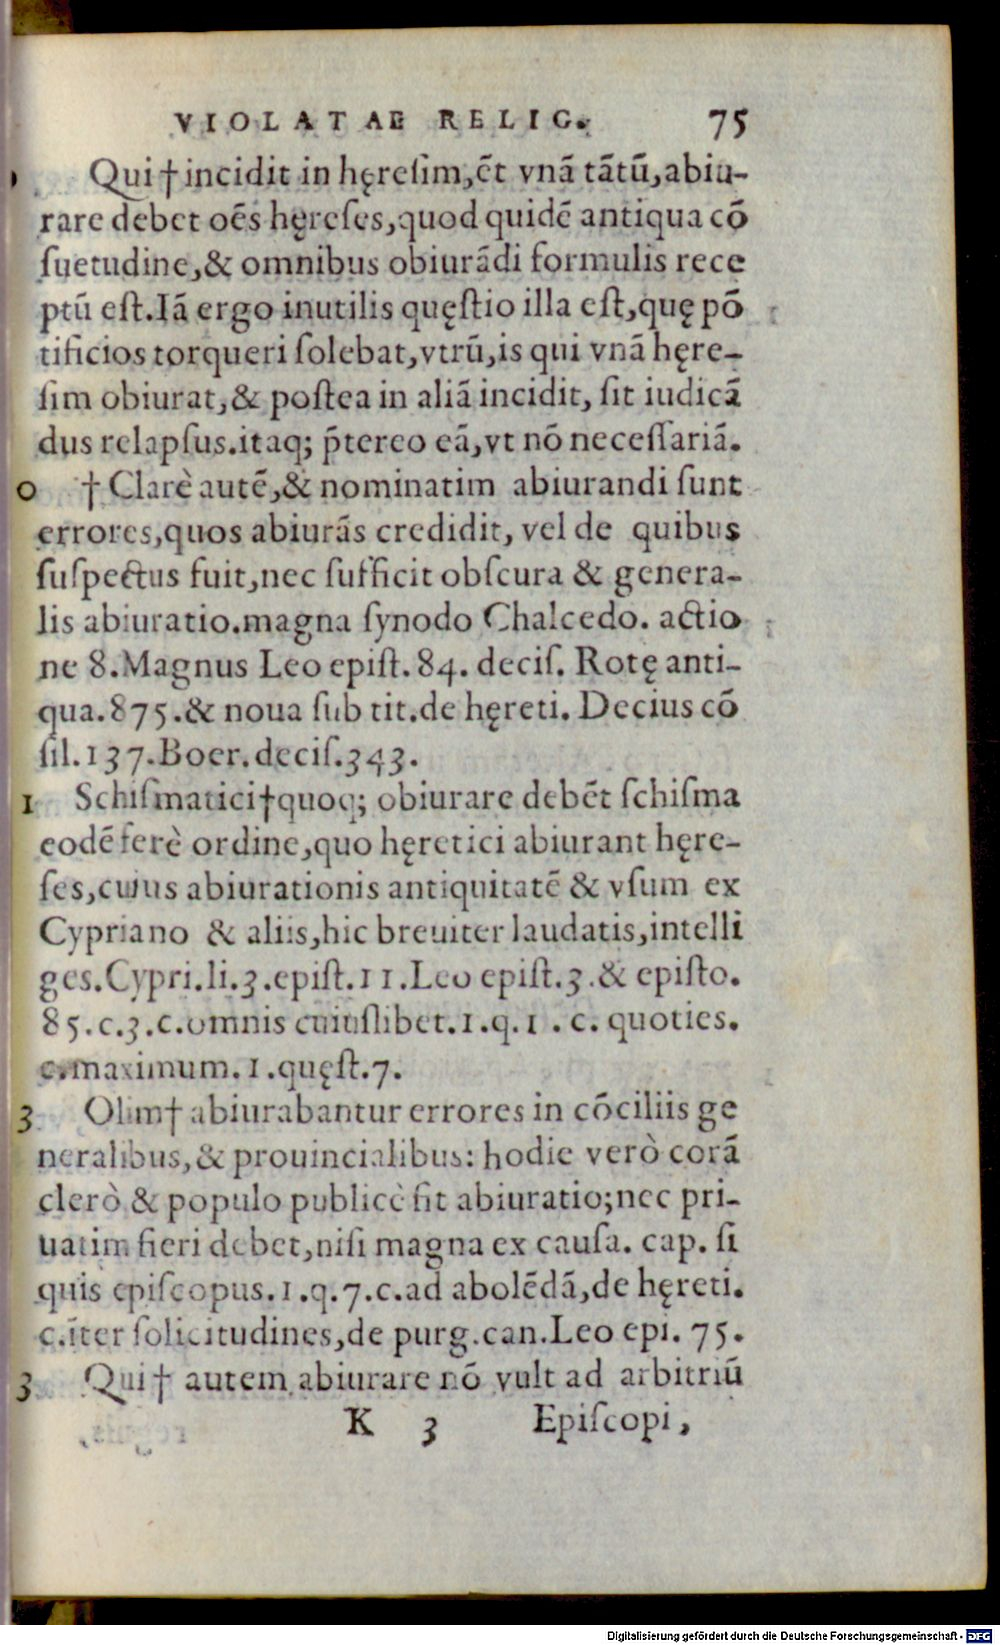 VIOLATAE RELIG. 75
Qui † incidit in hęresim, ēt vnā tātū, abiu-
rare debet oēs hęreses, quod quidē antiqua cō
suetudine, & omnibus obiurādi formulis rece
ptū est. Iā ergo inutilis quęstio illa est, quę pō
tificios torqueri solebat, vtrū, is qui vnā hęre-
sim obiurat, & postea in aliā incidit, sit iudicā
dus relapsus. itaq; p̄tereo eā, vt nō necessariā.
0 † Clarè autē, & nominatim abiurandi sunt
errores, quos abiurās credidit, vel de quibus
suspectus fuit, nec sufficit obscura & genera-
lis abiuratio. magna synodo Chalcedo. actio
ne 8. Magnus Leo epist. 84. decis. Rotę anti-
qua. 875. & noua sub tit. de hęreti. Decius cō
sil. 137. Boer. decis. 343.
1 Schismatici † quoq; obiurare debēt schisma
eodē ferè ordine, quo hęretici abiurant hęre-
ses, cuius abiurationis antiquitatē & vsum ex
Cypriano & aliis, hic breuiter laudatis, intelli
ges. Cypri. li. 3. epist. 11. Leo epist. 3. & episto.
85. c. 3. c. omnis cuiuslibet. 1. q. 1. c. quoties.
c. maximum. 1. quęst. 7.
3 Olim † abiurabantur errores in cōciliis ge
neralibus, & prouincialibus: hodie verò corā
clerò & populo publicè fit abiuratio; nec pri-
uatim fieri debet, nisi magna ex causa. cap. si
quis episcopus. 1. q. 7. c. ad abolēdā, de hęreti.
c. īter solicitudines, de purg. can. Leo epi. 75.
3 Qui † autem abiurare nō vult ad arbitriū
K 3 Episcopi,
Digitalisierung gefördert durch die Deutsche Forschungsgemeinschaft - DFG